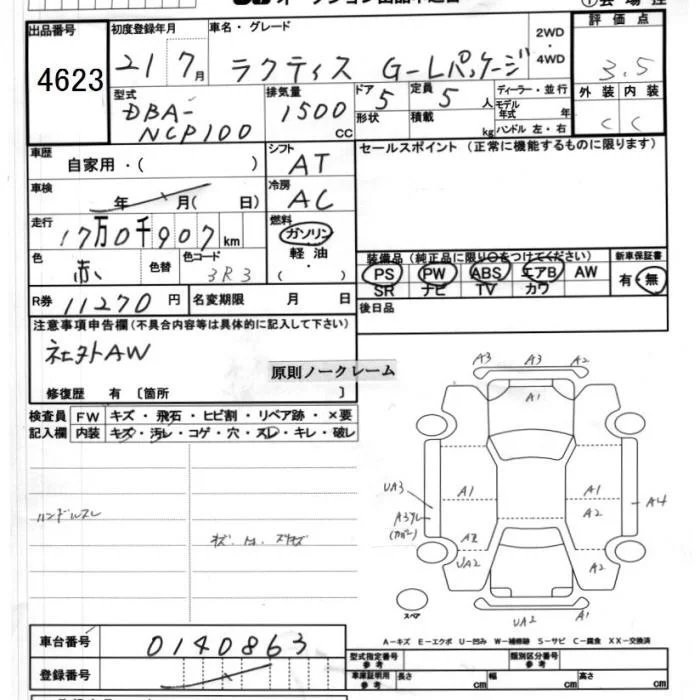 出品番号
4623
初度登録年月
21 7月
車名・グレード
ラクティス G-Lパッケージ
2WD
・
4WD
評価点
3.5
型式
DBA-
NCP100
排気量
1500
CC
ドア
5
定員
5人
形状
積載
kg
ディーラー・並行
モデル
年式 年
ハンドル 左・右
外装 内装
C C
車歴
自家用・( )
シフト
AT
セールスポイント (正常に機能するものに限ります)
車検
年 月( 日)
冷房
AC
走行
17万0千907km
燃料
ガソリン
・
軽油
色
赤
色替
色コード
3R3
装備品(純正品に限り○をつけてください)
新車保証書
PS PW ABS エアB AW
SR ナビ TV カワ
有・無
R券 11270円
名変期限 月 日
後日品
注意事項申告欄(不具合内容等は具体的に記入して下さい)
社外AW
原則ノークレーム
修復歴 有 〔箇所 〕
検査員
記入欄
FW キズ・飛石・ヒビ割・リペア跡・×要
内装 キズ・汚レ・コゲ・穴・スレ・キレ・破レ
ハンドルスレ
A3 A3 A2
A1
UA3
A1
A1
A4
A2
A2
UA2
A2
スペア
UA2
A1
A-キズ E-エクボ U-凹み W-補修跡 S-サビ C-腐食 XX-交換済
車台番号
0140863
登録番号
型式指定番号
参考
類別区分番号
参考
車庫証明用
参考
長さ cm
幅 cm
高さ cm